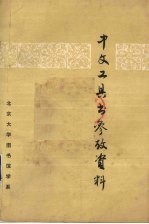 中文工具书参考资料
北京大学图书馆学系